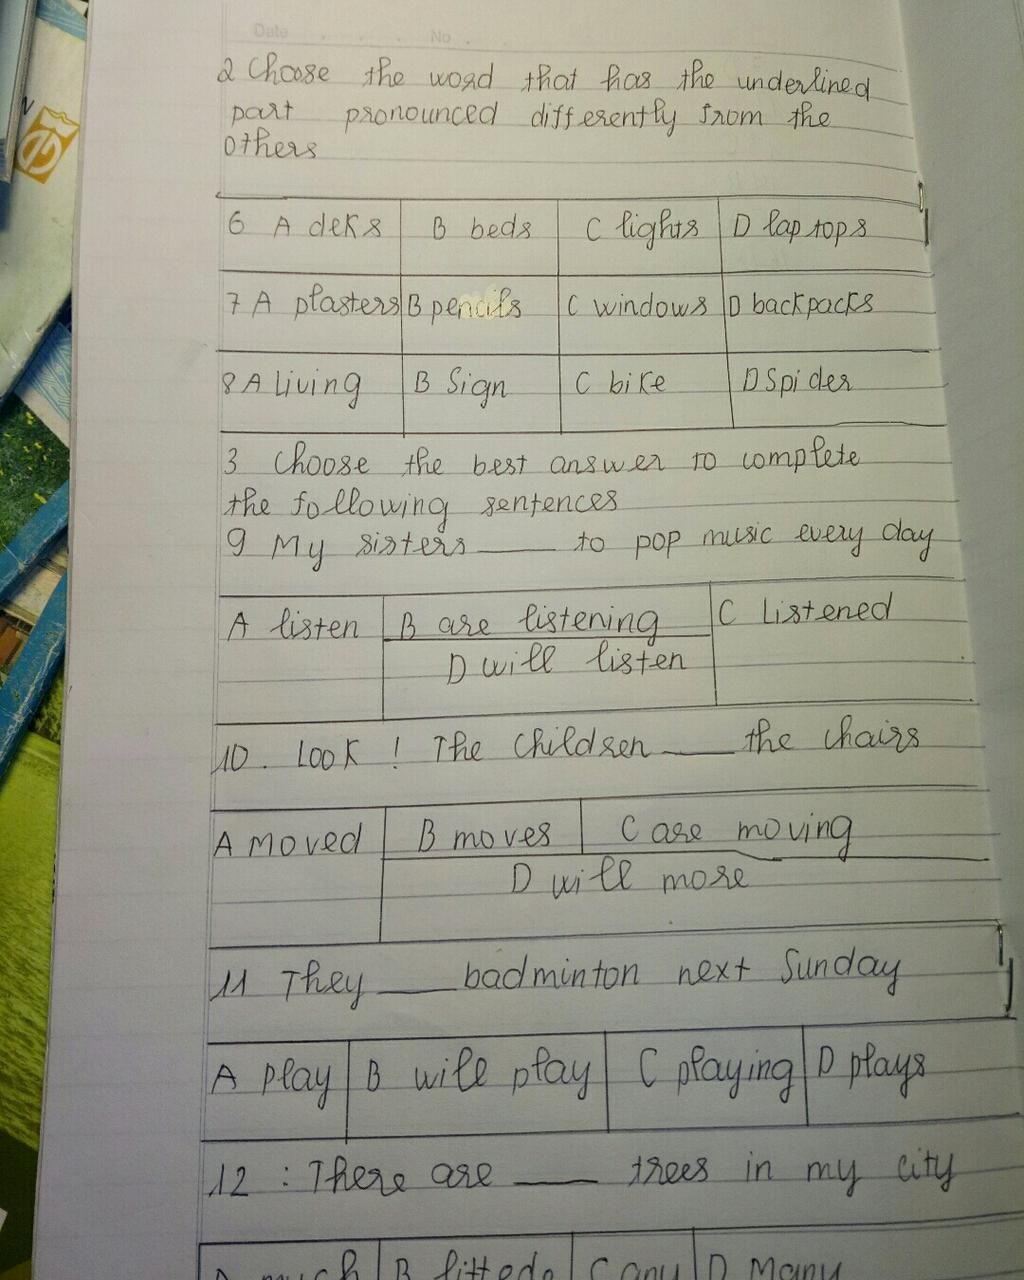 Date No.
2 Choose the word that has the underlined
part pronounced differently from the
others
6 A deks B beds C lights D laptops
7 A plasters B pencils C windows D backpacks
8 A Living B Sign C bike D Spider
3 Choose the best answer to complete
the following sentences
9 My sisters ____ to pop music every day
A listen B are listening C Listened
D will listen
10. Look! The children ____ the chairs
A Moved B moves C are moving
D will more
11 They ____ badminton next Sunday
A play B will play C playing D plays
12 : There are ____ trees in my city
much B C any D Many